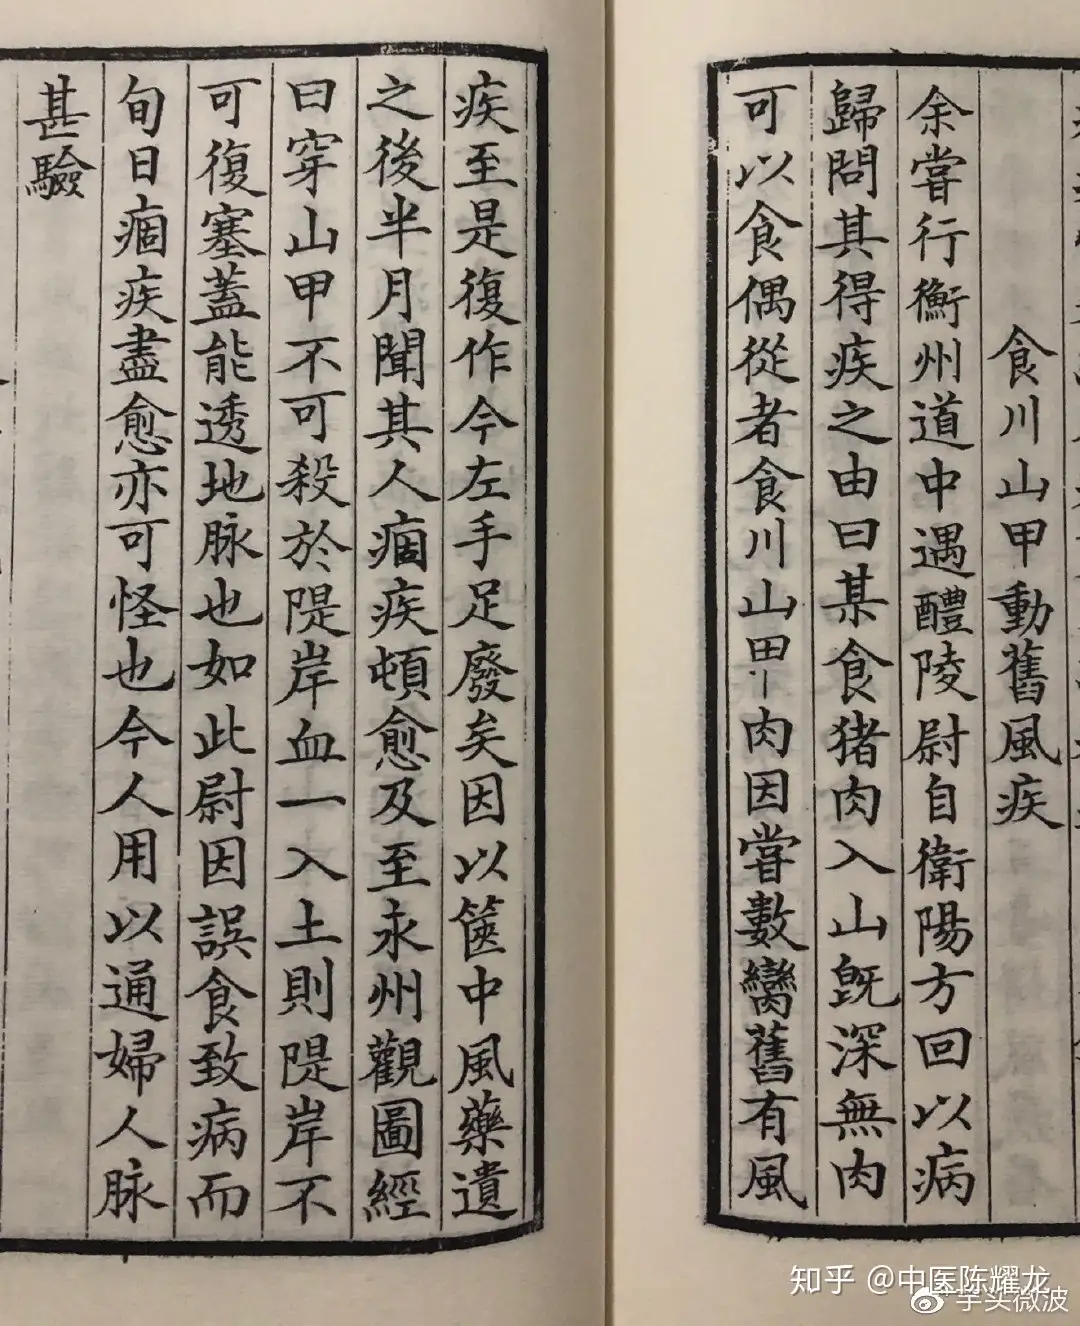 食川山甲動舊風疾
余嘗行衡州道中遇醴陵尉自衛陽方回以病
歸問其得疾之由曰某食猪肉入山既深無肉
可以食偶從者食川山甲肉因嘗數臠舊有風
疾至是復作今左手足廢矣因以篋中風藥遺
之後半月聞其人痼疾頓愈及至永州觀圖經
曰穿山甲不可殺於隄岸血一入土則隄岸不
可復塞蓋能透地脉也如此尉因誤食致病而
旬日痼疾盡愈亦可怪也今人用以通婦人脉
甚驗
知乎 @中医陈耀龙
芋头微波